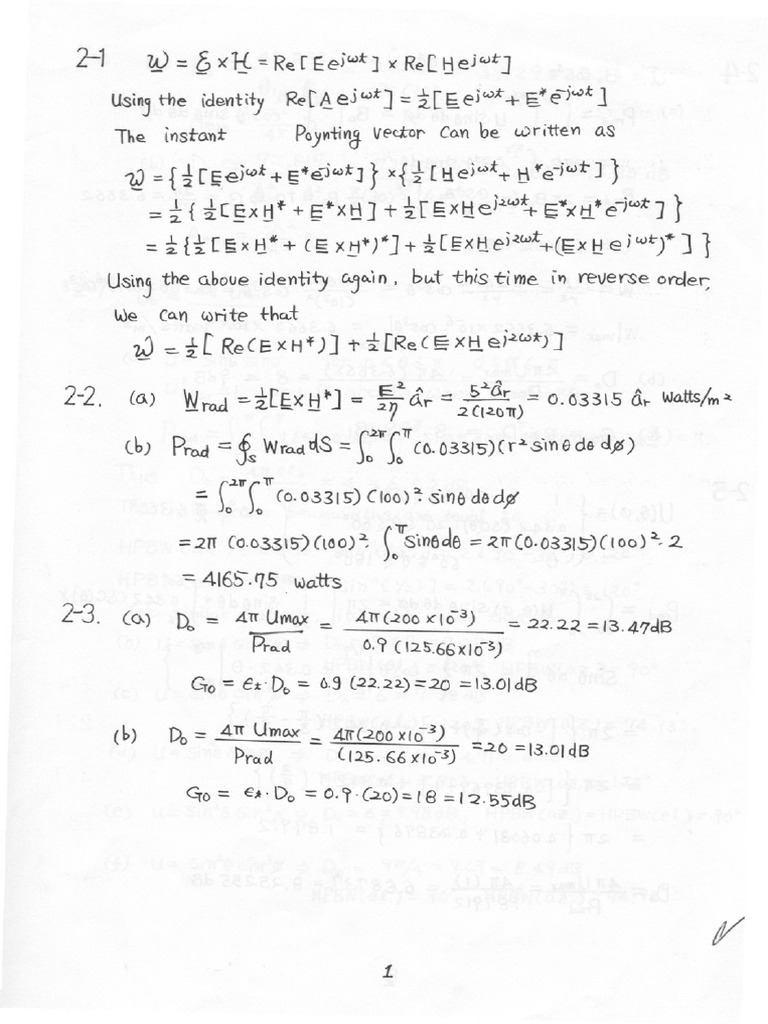 2-1 𝒲 = ℰ × ℋ = Re[Ee^jωt] × Re[He^jωt]
Using the identity Re[Ae^jωt] = ½[Ee^jωt + E*e^-jωt]
The instant Poynting vector can be written as
𝒲 = {½[Ee^jωt + E*e^-jωt]} × {½[He^jωt + H*e^-jωt]}
= ½{½[E×H* + E*×H] + ½[E×He^j2ωt + E*×H*e^-jωt]}
= ½{½[E×H* + (E×H*)*] + ½[E×He^j2ωt + (E×He^jωt)*]}
Using the above identity again, but this time in reverse order,
we can write that
𝒲 = ½[Re(E×H*)] + ½[Re(E×He^j2ωt)]
2-2. (a) Wrad = ½[E×H*] = E²/2η âr = 5²âr/2(120π) = 0.03315 âr watts/m²
(b) Prad = ∮s Wrad dS = ∫₀^2π ∫₀^π (0.03315)(r² sinθ dθ dø)
= ∫₀^2π ∫₀^π (0.03315)(100)² sinθ dθ dø
= 2π (0.03315)(100)² · ∫₀^π sinθdθ = 2π(0.03315)(100)² · 2
= 4165.75 watts
2-3. (a) D₀ = 4π Umax/Prad = 4π(200×10^-3)/0.9(125.66×10^-3) = 22.22 = 13.47dB
G₀ = et·D₀ = 0.9(22.22) = 20 = 13.01dB
(b) D₀ = 4π Umax/Prad = 4π(200×10^-3)/(125.66×10^-3) = 20 = 13.01dB
G₀ = et·D₀ = 0.9·(20) = 18 = 12.55dB
1